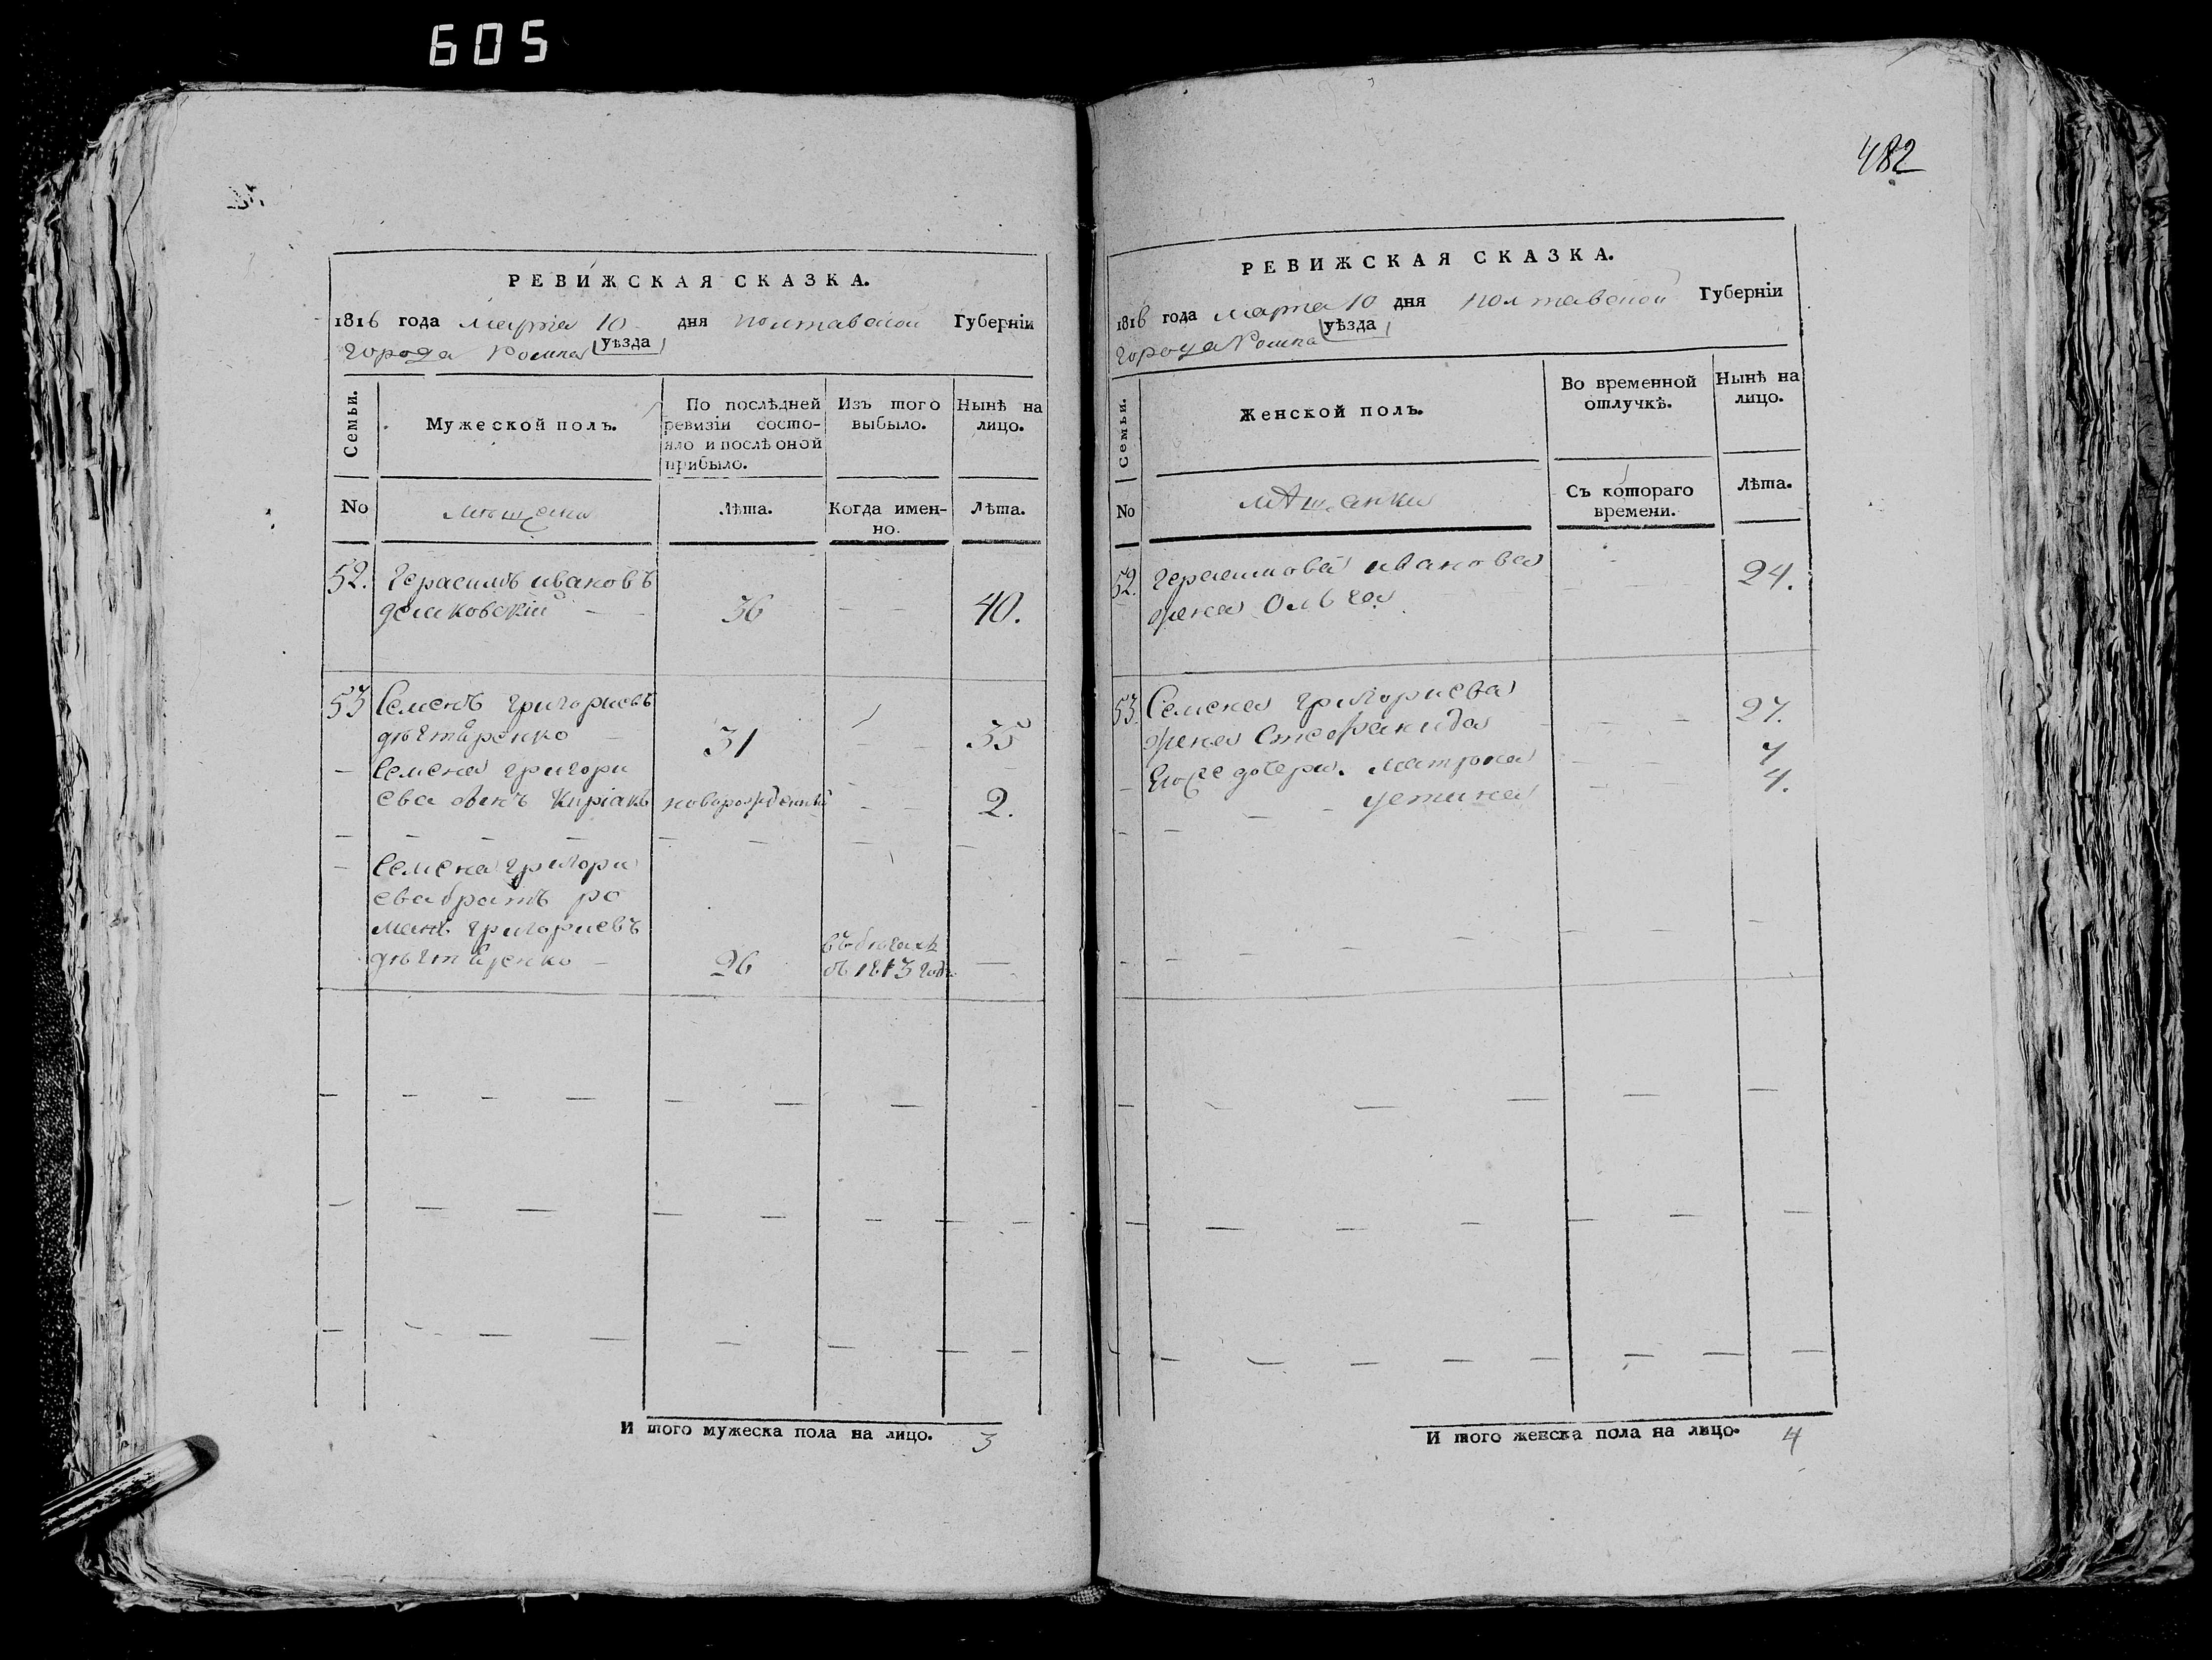 605
482
РЕВИЖСКАЯ СКАЗКА.
1816 года марта 10 дня полтавской Губерніи
города Ромна уѣзда
Семьи.
Мужеской полъ.
По послѣдней
ревизіи состо-
яло и послѣ оной
прибыло.
Изъ того
выбыло.
Нынѣ на
лицо.
No
мѣщане
Лѣта.
Когда имен-
но.
Лѣта.
52. Герасимъ ивановъ
36 40.
53 Семенъ григориевъ
31 35
Семена григори
ева сынъ Киріакъ новорожденный 2.
Семена григори
ева братъ ро
манъ григориевъ
въ бегахъ
26 съ 1813 года
И того мужеска пола на лицо. 3
РЕВИЖСКАЯ СКАЗКА.
1816 года марта 10 дня полтавской Губерніи
города Ромна уѣзда
Семьи.
Женской полъ.
Во временной
отлучкѣ.
Нынѣ на
лицо.
No
мѣщанки
Съ котораго
времени.
Лѣта.
52. герасимова иванова 24.
жена Ольга
53. Семена григориева 27.
жена Стефанида
дочери. матрона
устина 4.
И того женска пола на лицо. 4